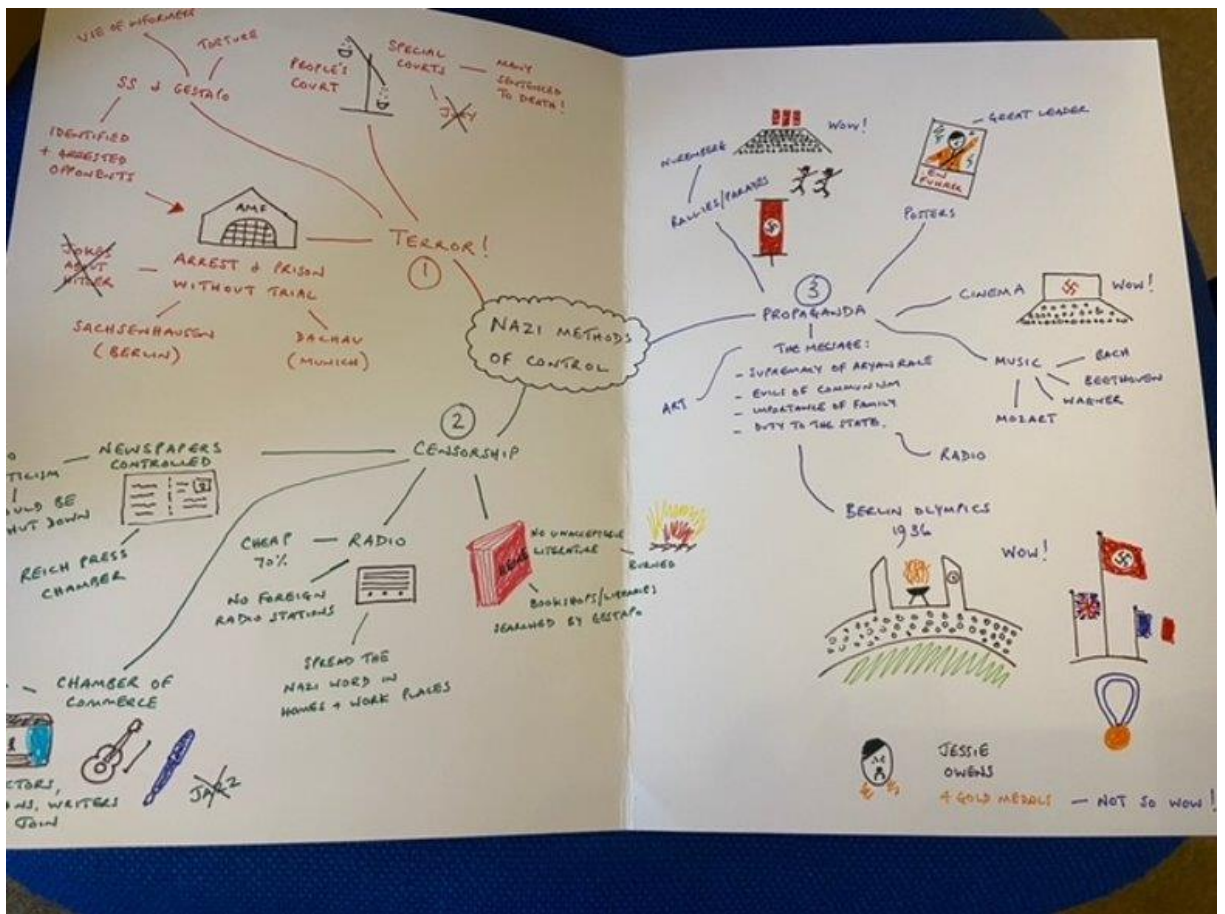 NAZI METHODS
OF CONTROL
1
TERROR!
USE OF INFORMERS
TORTURE
SS & GESTAPO
IDENTIFIED
+ ARRESTED
OPPONENTS
PEOPLE'S
COURT
SPECIAL
COURTS
JURY
MANY
SENTENCED
TO DEATH!
JOKES
ABOUT
HITLER
ARREST & PRISON
WITHOUT TRIAL
SACHSENHAUSEN
(BERLIN)
DACHAU
(MUNICH)
2
CENSORSHIP
NEWSPAPERS
CONTROLLED
TICISM
ULD BE
HUT DOWN
REICH PRESS
CHAMBER
CHEAP
70%
RADIO
NO FOREIGN
RADIO STATIONS
SPREAD THE
NAZI WORD IN
HOMES + WORK PLACES
NO UNACCEPTABLE
LITERATURE
BURNED
BOOKSHOPS/LIBRARIES
SEARCHED BY GESTAPO
CHAMBER OF
COMMERCE
JAZZ
CTORS,
NS, WRITERS
JOIN
3
PROPAGANDA
NUREMBERG
WOW!
RALLIES/PARADES
GREAT LEADER
EIN
FUHRER
POSTERS
CINEMA
WOW!
MUSIC
BACH
BEETHOVEN
WAGNER
MOZART
ART
THE MESSAGE:
- SUPREMACY OF ARYAN RACE
- EVILS OF COMMUNISM
- IMPORTANCE OF FAMILY
- DUTY TO THE STATE.
RADIO
BERLIN OLYMPICS
1936
WOW!
JESSIE
OWENS
4 GOLD MEDALS - NOT SO WOW!